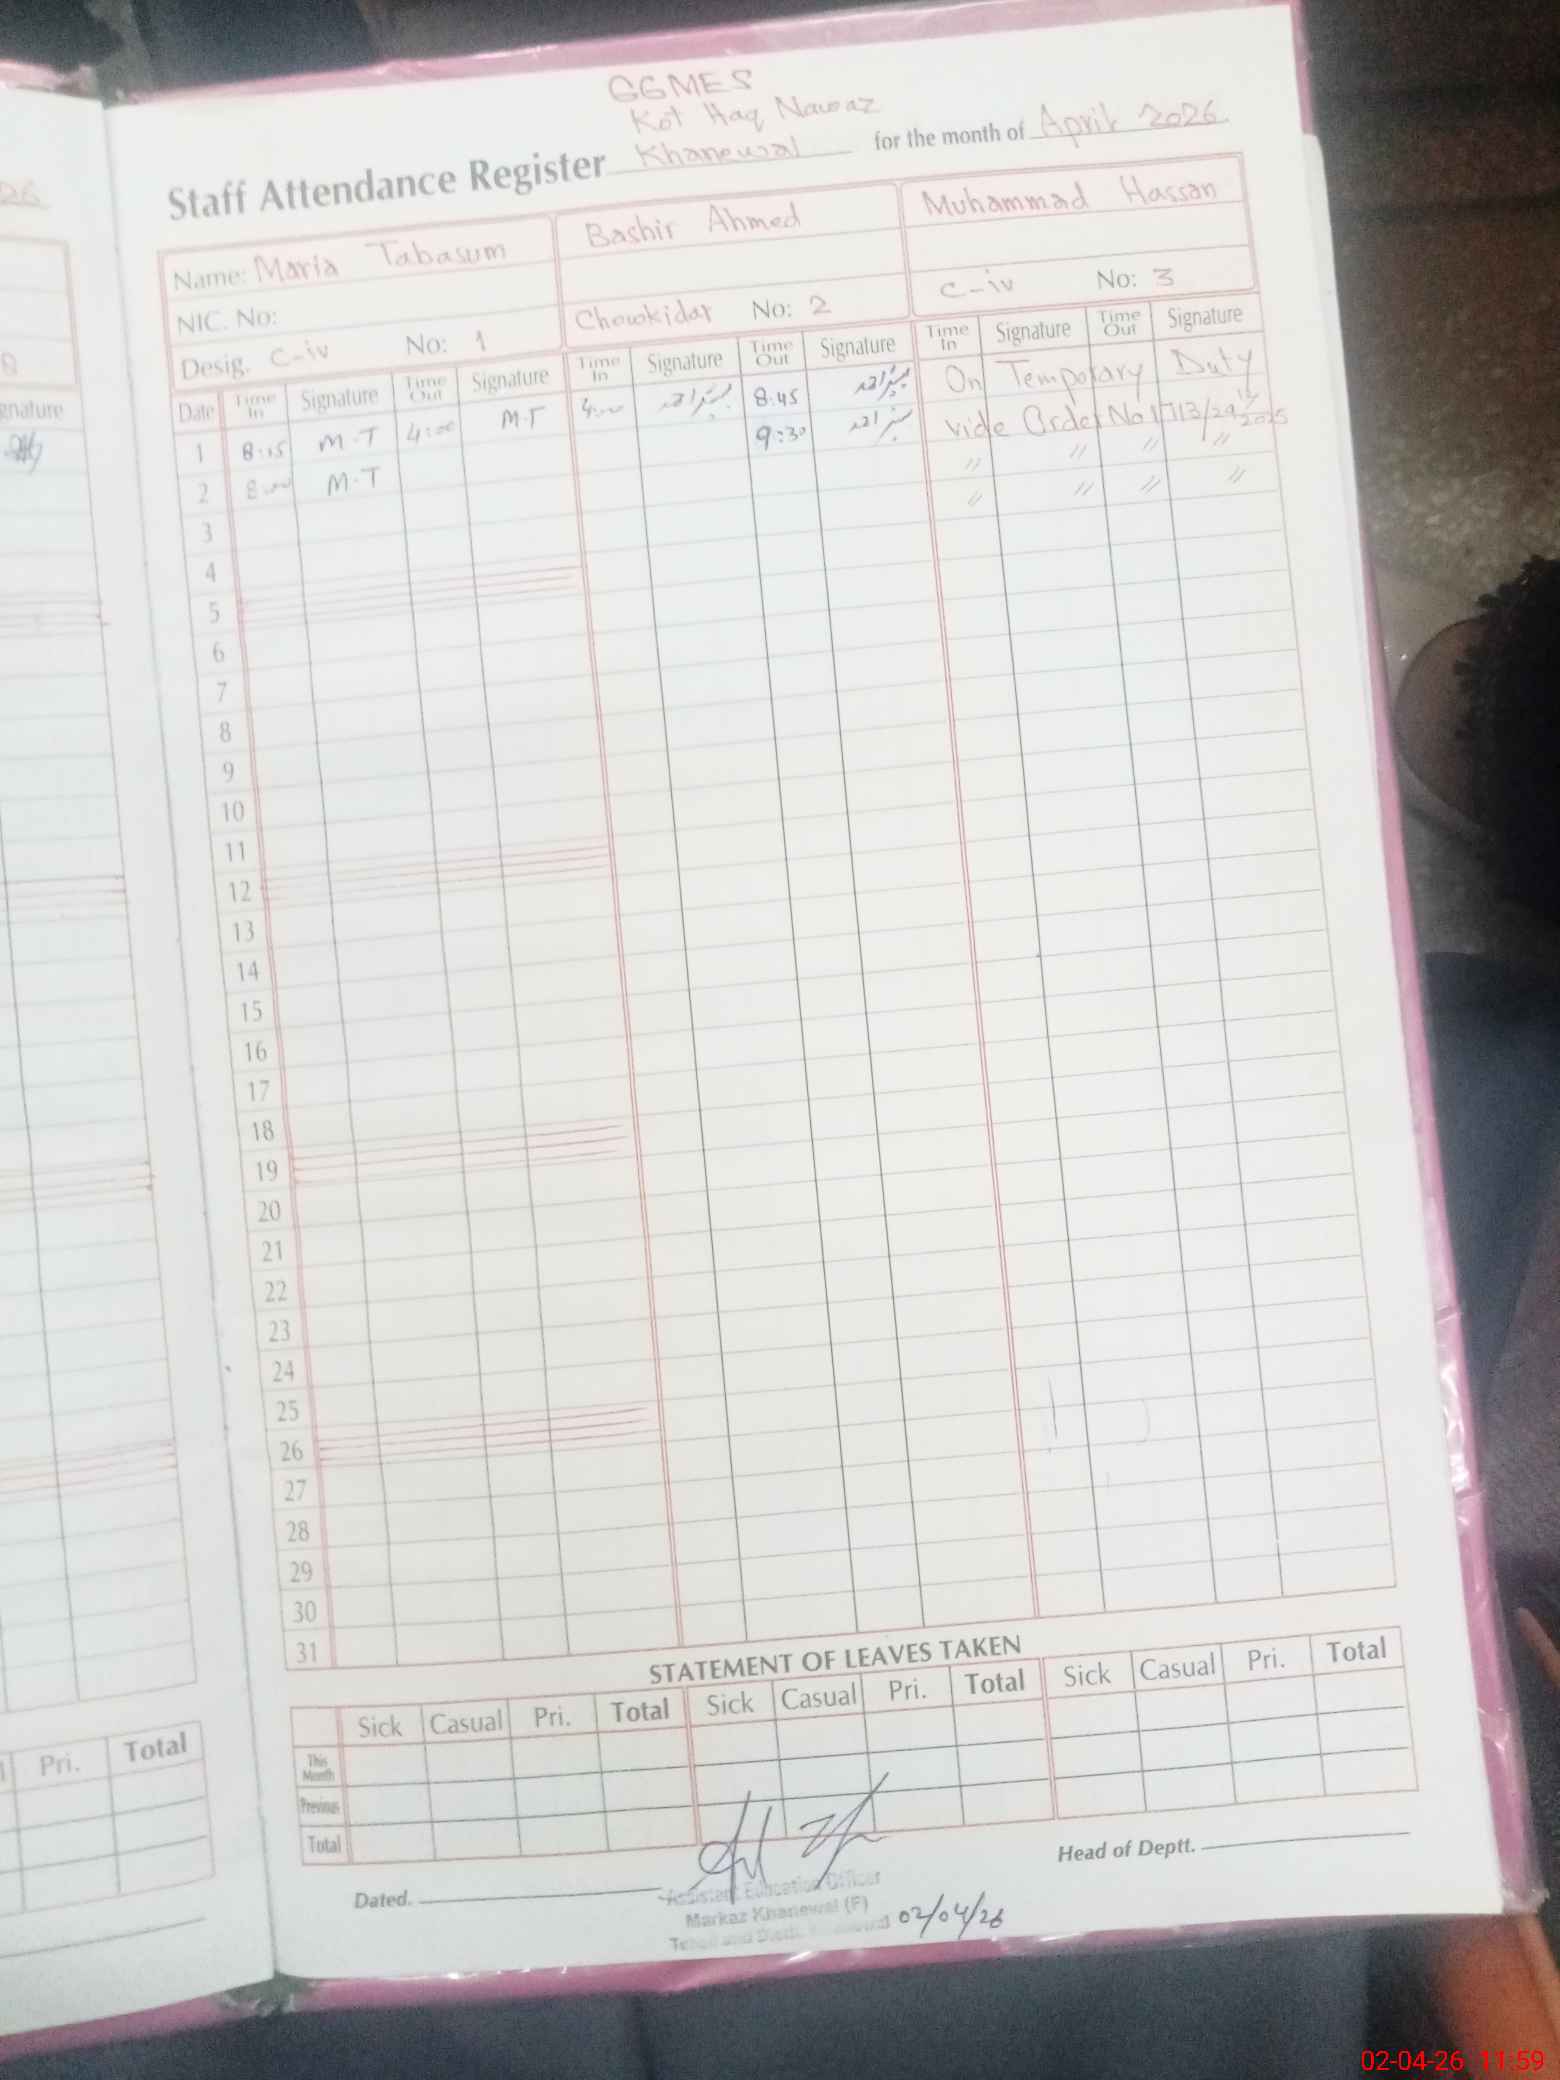 GGMES
Kot Haq Nawaz
Staff Attendance Register Khanewal for the month of April 2026
Name: Maria Tabasum Bashir Ahmed Muhammad Hassan
NIC. No:
Desig. C-iv No: 1 Chowkidar No: 2 C-iv No: 3
Date Time In Signature Time Out Signature Time In Signature Time Out Signature Time In Signature Time Out Signature
1 8:15 M.T 4:00 M.T 4:00 بشیر احمد 8:45 بشیر احمد On Temporary Duty
2 8:00 M.T 9:30 بشیر احمد vide Order No
3 〃 〃 〃 〃
4 〃 〃 〃 〃
5
6
7
8
9
10
11
12
13
14
15
16
17
18
19
20
21
22
23
24
25
26
27
28
29
30
31
STATEMENT OF LEAVES TAKEN
Sick Casual Pri. Total Sick Casual Pri. Total Sick Casual Pri. Total
This Month
Previous
Total
Dated. Head of Deptt.
Assistant Education Officer
Markaz Khanewal (F)
02/04/26
26
gnature
Pri. Total
02-04-26 11:59